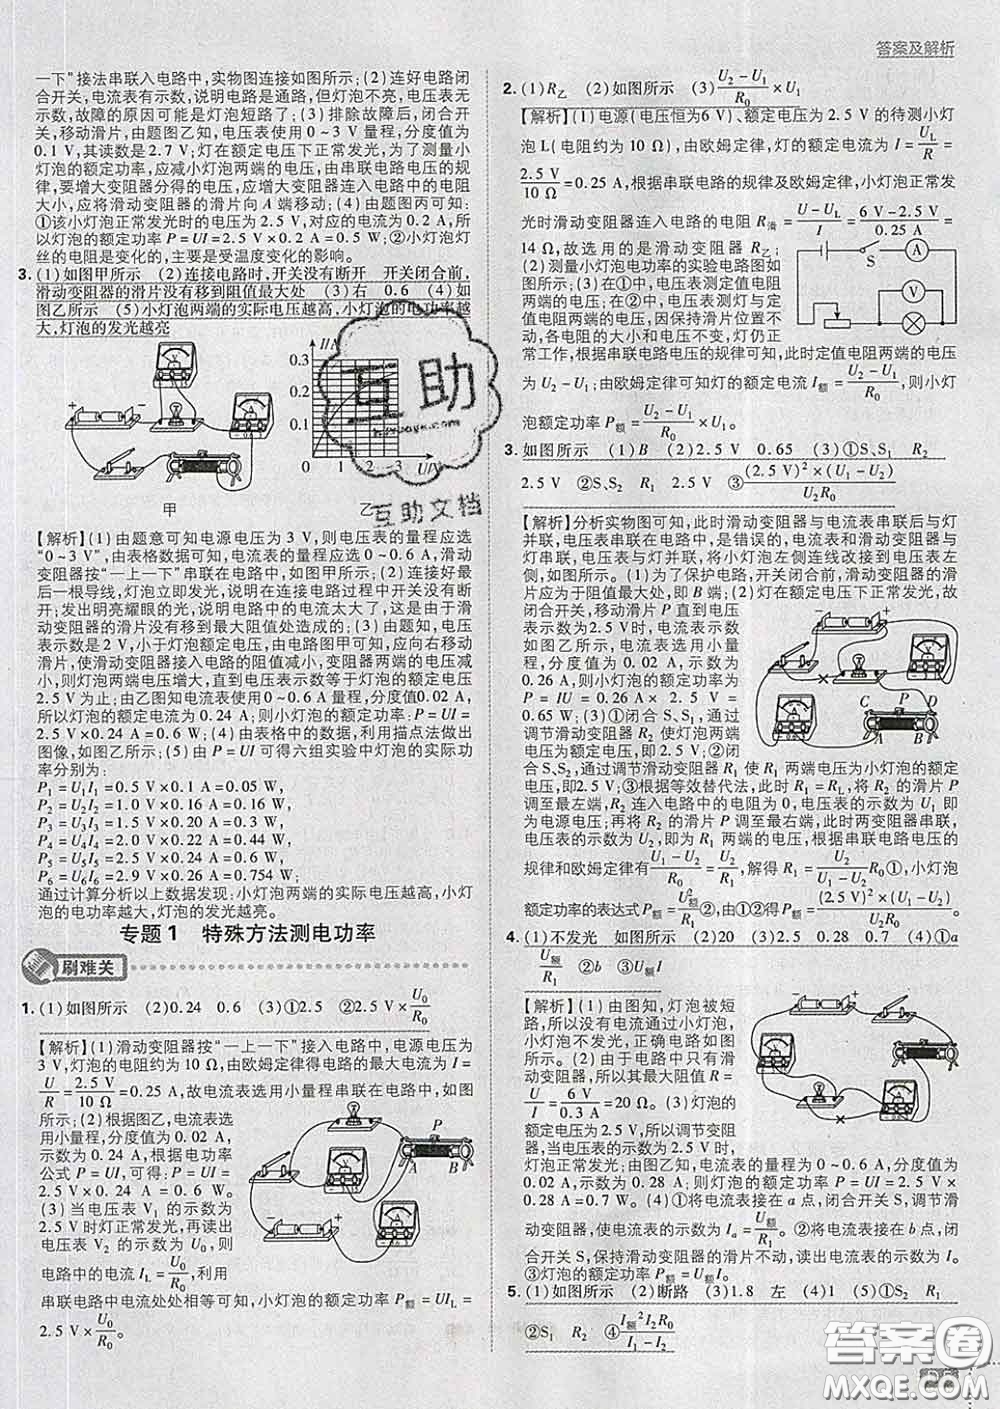 答案及解析
一下”接法串联入电路中,实物图连接如图所示;(2)连好电路闭
合开关,电流表有示数,说明电路是通路,但灯泡不亮,电压表无
示数,故障的原因可能是灯泡短路;(3)排除故障后,闭合开
关,移动滑片,由题图乙知,电压表使用 0~3 V 量程,分度值为
0.1 V,其读数是 2.7 V;灯在额定电压下正常发光,为了测量小
灯泡的额定功率,应减小灯泡两端的电压,由串联电路电压的规
律,要增大变阻器分得的电压,应增大变阻器连入电路中的电阻
大小,应将滑动变阻器的滑片向 A 端移动;(4)根据图丙可知:
①该小灯泡正常发光时的电压为 2.5 V,对应的电流为 0.2 A,所
以灯泡的额定功率 P=UI=2.5 V×0.2 A=0.5 W;②小灯泡灯
丝的电阻是变化的,主要是受温度变化的影响。
3. (1)如图甲所示 (2)连接电路时,开关没有断开 开关闭合前,
滑动变阻器的滑片没有移到阻值最大处 (3)右 0.6 (4)如
图乙所示 (5)小灯泡两端的实际电压越高,小灯泡的电功率越
大,灯泡的发光越亮
I/A
0.3
0.2
0.1
0 1 2 3 U/V
甲 乙
【解析】(1)由题意可知电源电压为 3 V,则电压表的量程应选
“0~3 V”,由表格数据可知,电流表的量程应选 0~0.6 A,滑动
变阻器按“一上一下”串联在电路中,如图甲所示;(2)连接好最
后一根导线,灯泡立即发光,说明在连接电路过程中开关没有断
开;发出明亮耀眼的光,说明电路中的电流太大了,这是由于滑
动变阻器的滑片没有移到最大阻值处造成的;(3)由题知,电压
表示数是 2 V,小于灯泡额定电压,由电路图甲可知,应向右移动
滑片,使滑动变阻器接入电路的阻值减小,变阻器两端的电压减
小,则灯泡两端电压增大,直到电压表示数等于灯泡的额定电压
2.5 V 为止;由乙图知电流表使用 0~0.6 A 量程,分度值为 0.02 A,
所以灯泡的额定电流为 0.24 A;则小灯泡的额定功率:P=UI=
2.5 V×0.24 A=0.6 W;(4)由表格中的数据,利用描点法做出
图像,如图乙所示;(5)由 P=UI 可得六组实验中灯泡的实际功
率分别为:
P₁=U₁I₁=0.5 V×0.1 A=0.05 W,
P₂=U₂I₂=1.0 V×0.16 A=0.16 W,
P₃=U₃I₃=1.5 V×0.20 A=0.3 W,
P₄=U₄I₄=2.0 V×0.22 A=0.44 W,
P₅=U₅I₅=2.5 V×0.24 A=0.6 W,
P₆=U₆I₆=2.9 V×0.26 A=0.754 W;
通过计算分析以上数据发现:小灯泡两端的实际电压越高,小灯
泡的电功率越大,灯泡的发光越亮。
专题 1 特殊方法测电功率
刷难关
1. (1)如图所示 (2)0.24 0.6 (3)①2.5 ②2.5 V×U₀/R₀
【解析】(1)滑动变阻器按“一上一下”接入电路中,电源电压为
3 V,灯泡的电阻约为 10 Ω,由欧姆定律得电路的最大电流为 I=
U/R=2.5 V/10 Ω=0.25 A,故电流表选用小量程串联在电路中,如图
所示;(2)根据图乙,电流表选
用小量程,分度值为 0.02 A,
示数为 0.24 A,根据电功率
公式 P=UI,可得:P=UI=
2.5 V×0.24 A=0.6 W;
(3)当电压表 V₁ 的示数为
2.5 V时灯正常发光,再读出
电压表 V₂ 的示数为 U₀,则
电路中的电流 I_L=U₀/R₀,利用
串联电路中电流处处相等可知,小灯泡的额定功率 P额=UI_L=
2.5 V×U₀/R₀。
P
A B
2. (1)R乙 (2)如图所示 (3)(U₂-U₁)/R₀×U₁
【解析】(1)电源(电压恒为6 V)、额定电压为 2.5 V 的待测小灯
泡 L(电阻约为 10 Ω),由欧姆定律,灯的额定电流为 I=U_L/R=
2.5 V/10 Ω=0.25 A,根据串联电路的规律及欧姆定律,小灯泡正常发
光时滑动变阻器连入电路的电阻 R滑=(U-U_L)/I=(6 V-2.5 V)/0.25 A=
14 Ω,故选用的是滑动变阻器 R乙;
(2)测量小灯泡电功率的实验电路图如
图所示;(3)在①中,电压表测定值电阻
两端的电压;在②中,电压表测灯与定值
电阻两端的电压,因保持滑片位置不动
,各电阻的大小和电压不变,灯仍正
常工作,根据串联电路电压的规律可知,此时定值电阻两端的电压
为 U₂-U₁;由欧姆定律可知灯的额定电流 I额=(U₂-U₁)/R₀,则小灯
泡额定功率 P额=(U₂-U₁)/R₀×U₁。
S A V
3. 如图所示 (1)B (2)2.5 V 0.65 (3)①S、S₁ R₂
2.5 V ②S、S₂ R₁ 2.5 V ③(2.5 V)²×(U₁-U₂)/U₂R₀
【解析】分析实物图可知,此时滑动变阻器与电流表串联后与灯
并联,电压表串联在电路中,是错误的,电流表和滑动变阻器应与
灯串联,电压表与灯并联,将小灯泡左侧连线改接到电压表左
侧,如图所示。(1)为了保护电路,开关闭合前,滑动变阻器的滑
片应为于阻值最大处,即 B 端;(2)灯在额定电压下正常发光,故
闭合开关,移动滑片 P 直到电压
表示数为 2.5 V 时,电流表示数
如图乙所示,电流表选用小量程,
分度值为 0.02 A,示数为
0.26 A,则小灯泡的额定功率为
P=IU=0.26 A×2.5 V=
0.65 W;(3)①闭合 S、S₁,通过
调节滑动变阻器 R₂ 使灯泡两端
电压为额定电压即可;②闭
合 S、S₂,通过调节滑动变阻器 R₁ 使 R₁ 两端电压为小灯泡的额定
电压,即 2.5 V;③根据等效替代法,此时 R₁=R_L,将 R₂ 的滑片 P
调至最左端,R₂ 连入电路中的电阻为 0,此时电压表的示数 U₁ 即
为电源电压;再将 R₂ 的滑片 P 调至最右端,此时两变阻器串联,
电压表的示数为 U₂,即为 R₁ 两端的电压,根据串联电路电压的
规律和欧姆定律有(U₁-U₂)/R₀=U₂/R₁,解得 R₁=U₂/(U₁-U₂)R₀①,小灯泡
额定功率的表达式P额=U额²/R₁②,由①②得:P额=(2.5 V)²×(U₁-U₂)/U₂R₀。
C P D
A B
4. (1)不发光 如图所示 (2)20 (3)2.5 0.28 0.7 (4)①a
U额/R₁ ②b ③U额I
【解析】(1)由图知,灯泡被短
路,所以没有电流通过小灯泡,
小灯泡不发光,正确电路如图
所示;(2)由于电路中只有滑
动变阻器,所以其最大阻值 R=
U/I=6 V/0.3 A=20 Ω。(3)灯泡的
额定电压为 2.5 V,所以调节变阻
器,当电压表的示数为 2.5 V时,
灯泡正常发光;由图知,电流表选择的量程为 0~0.6 A,分度值为
0.02 A,示数为 0.28 A,则灯泡的额定功率 P额=U额I额=2.5 V×
0.28 A=0.7 W。(4)①将电流表接在 a 点,闭合开关 S,调节滑
动变阻器,使电流表的示数为 Iₐ=U额/R₁。②将电流表接在 b 点,闭
合开关 S,保持滑动变阻器的滑片不动,读出电流表的示数为 I。
③灯泡的额定功率 P额=U额I。
5. (1)如图所示 (2)断路 (3)1.8 左 (4)1 (5)①S₂ R₁
②S₁ R₂ ④I额²I₂R₀/(I₁-I₂)
互助
互助文档
答案圈
MXQE.COM